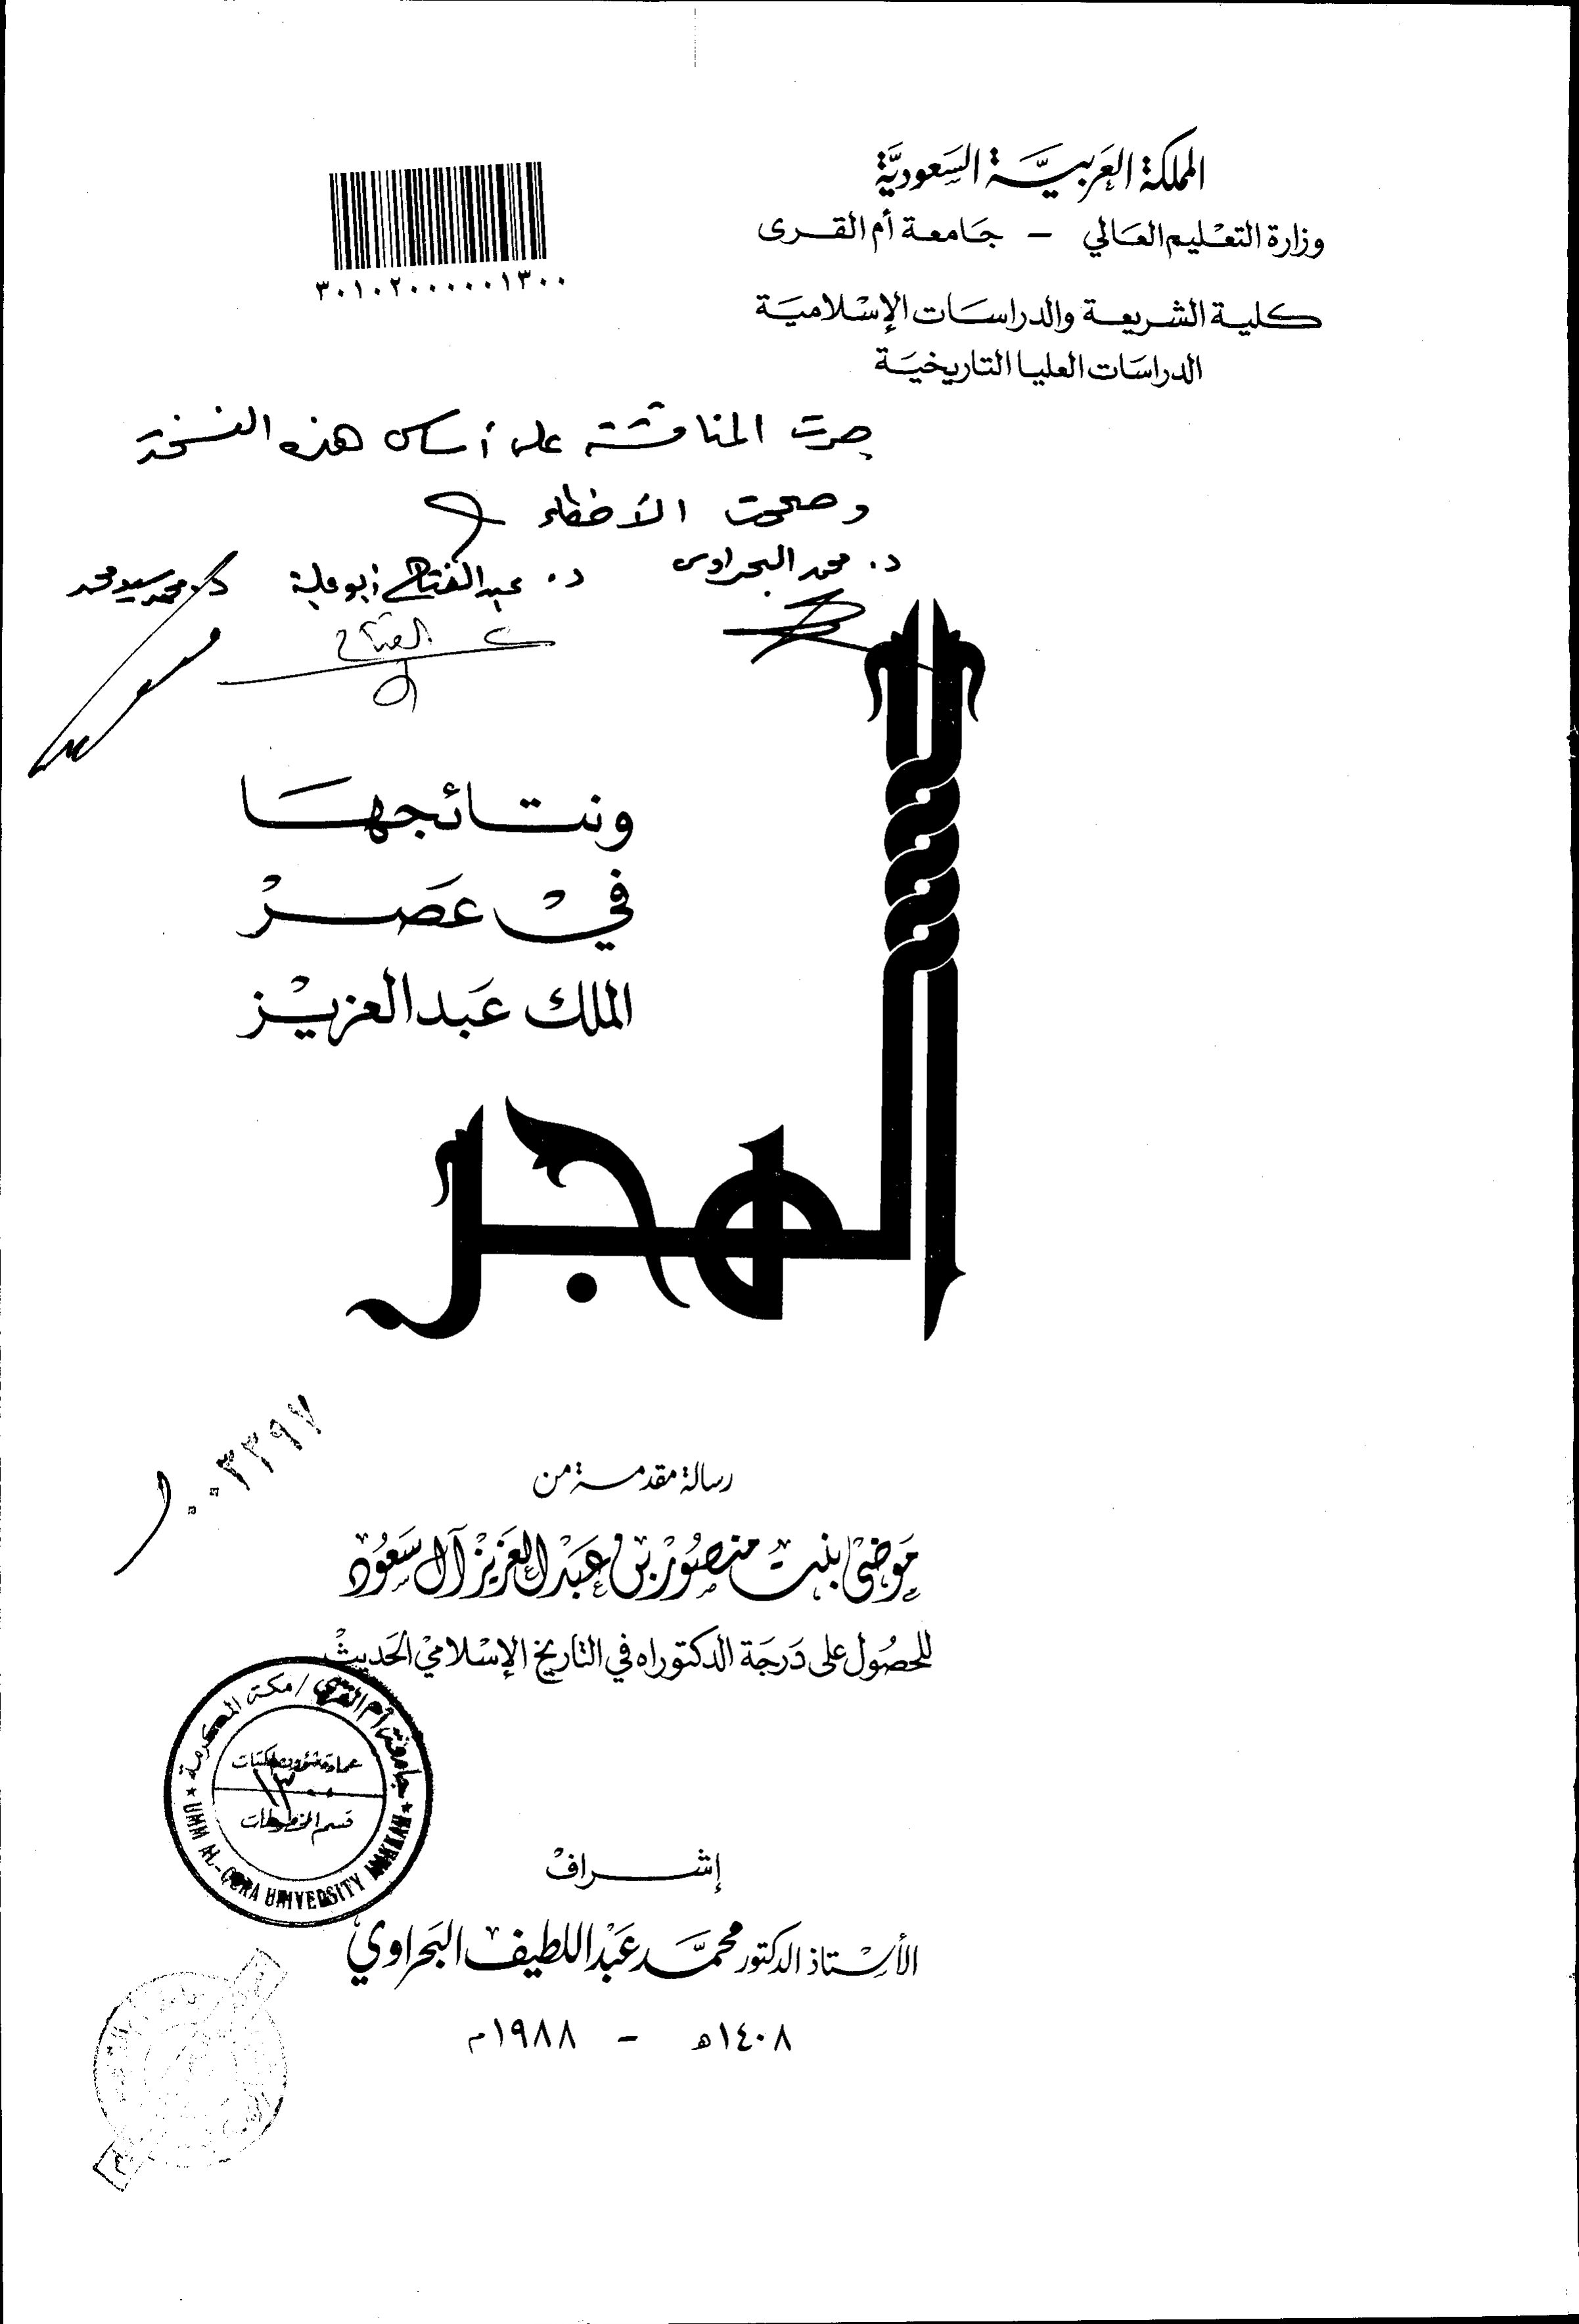 المملكة العربية السعودية
وزارة التعليم العالي - جامعة أم القرى
كلية الشريعة والدراسات الإسلامية
الدراسات العليا التاريخية
٣٠١٠٢٠٠٠٠٠١٣٠٠
جرت المناقشة على أساس هذه النسخة
وصححت الأخطاء
د. محمد البحراوي د. عبد الفتاح أبو علية د. محمد سيد محمد
الهجر
ونتائجها
في عصر
الملك عبد العزيز
٠٠٣٢٩٧
رسالة مقدمة من
موضي بنت منصور بن عبد العزيز آل سعود
للحصول على درجة الدكتوراه في التاريخ الإسلامي الحديث
جامعة أم القرى / مكة المكرمة
عمادة شؤون المكتبات
١٣٠٠
قسم المخطوطات
UMM AL-QURA UNIVERSITY MAKKAH
إشراف
الأستاذ الدكتور محمد عبد اللطيف البحراوي
١٤٠٨ه - ١٩٨٨م